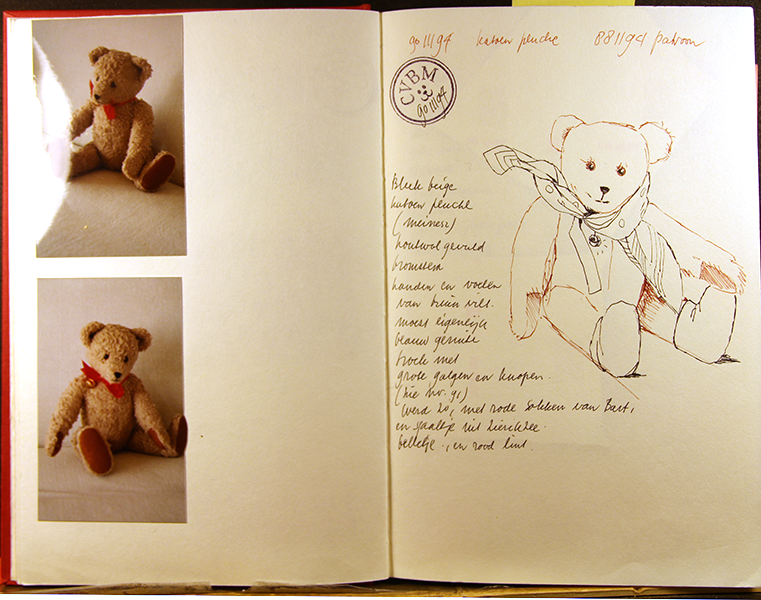 90 11194 katoen pluche 881194 patroon
CVBM
90 11194
Bleek beige
katoen pluche
(meinese)
houtwol gevuld
bromstem
handen en voeten
van bruin vilt.
moest eigenlijk
blauw geruite
broek met
grote galgen en knopen.
(zie no. 91)
Werd zo, met rode sokken van Bart,
en sjaaltje uit Zierikzee.
belletje, en rood lint.